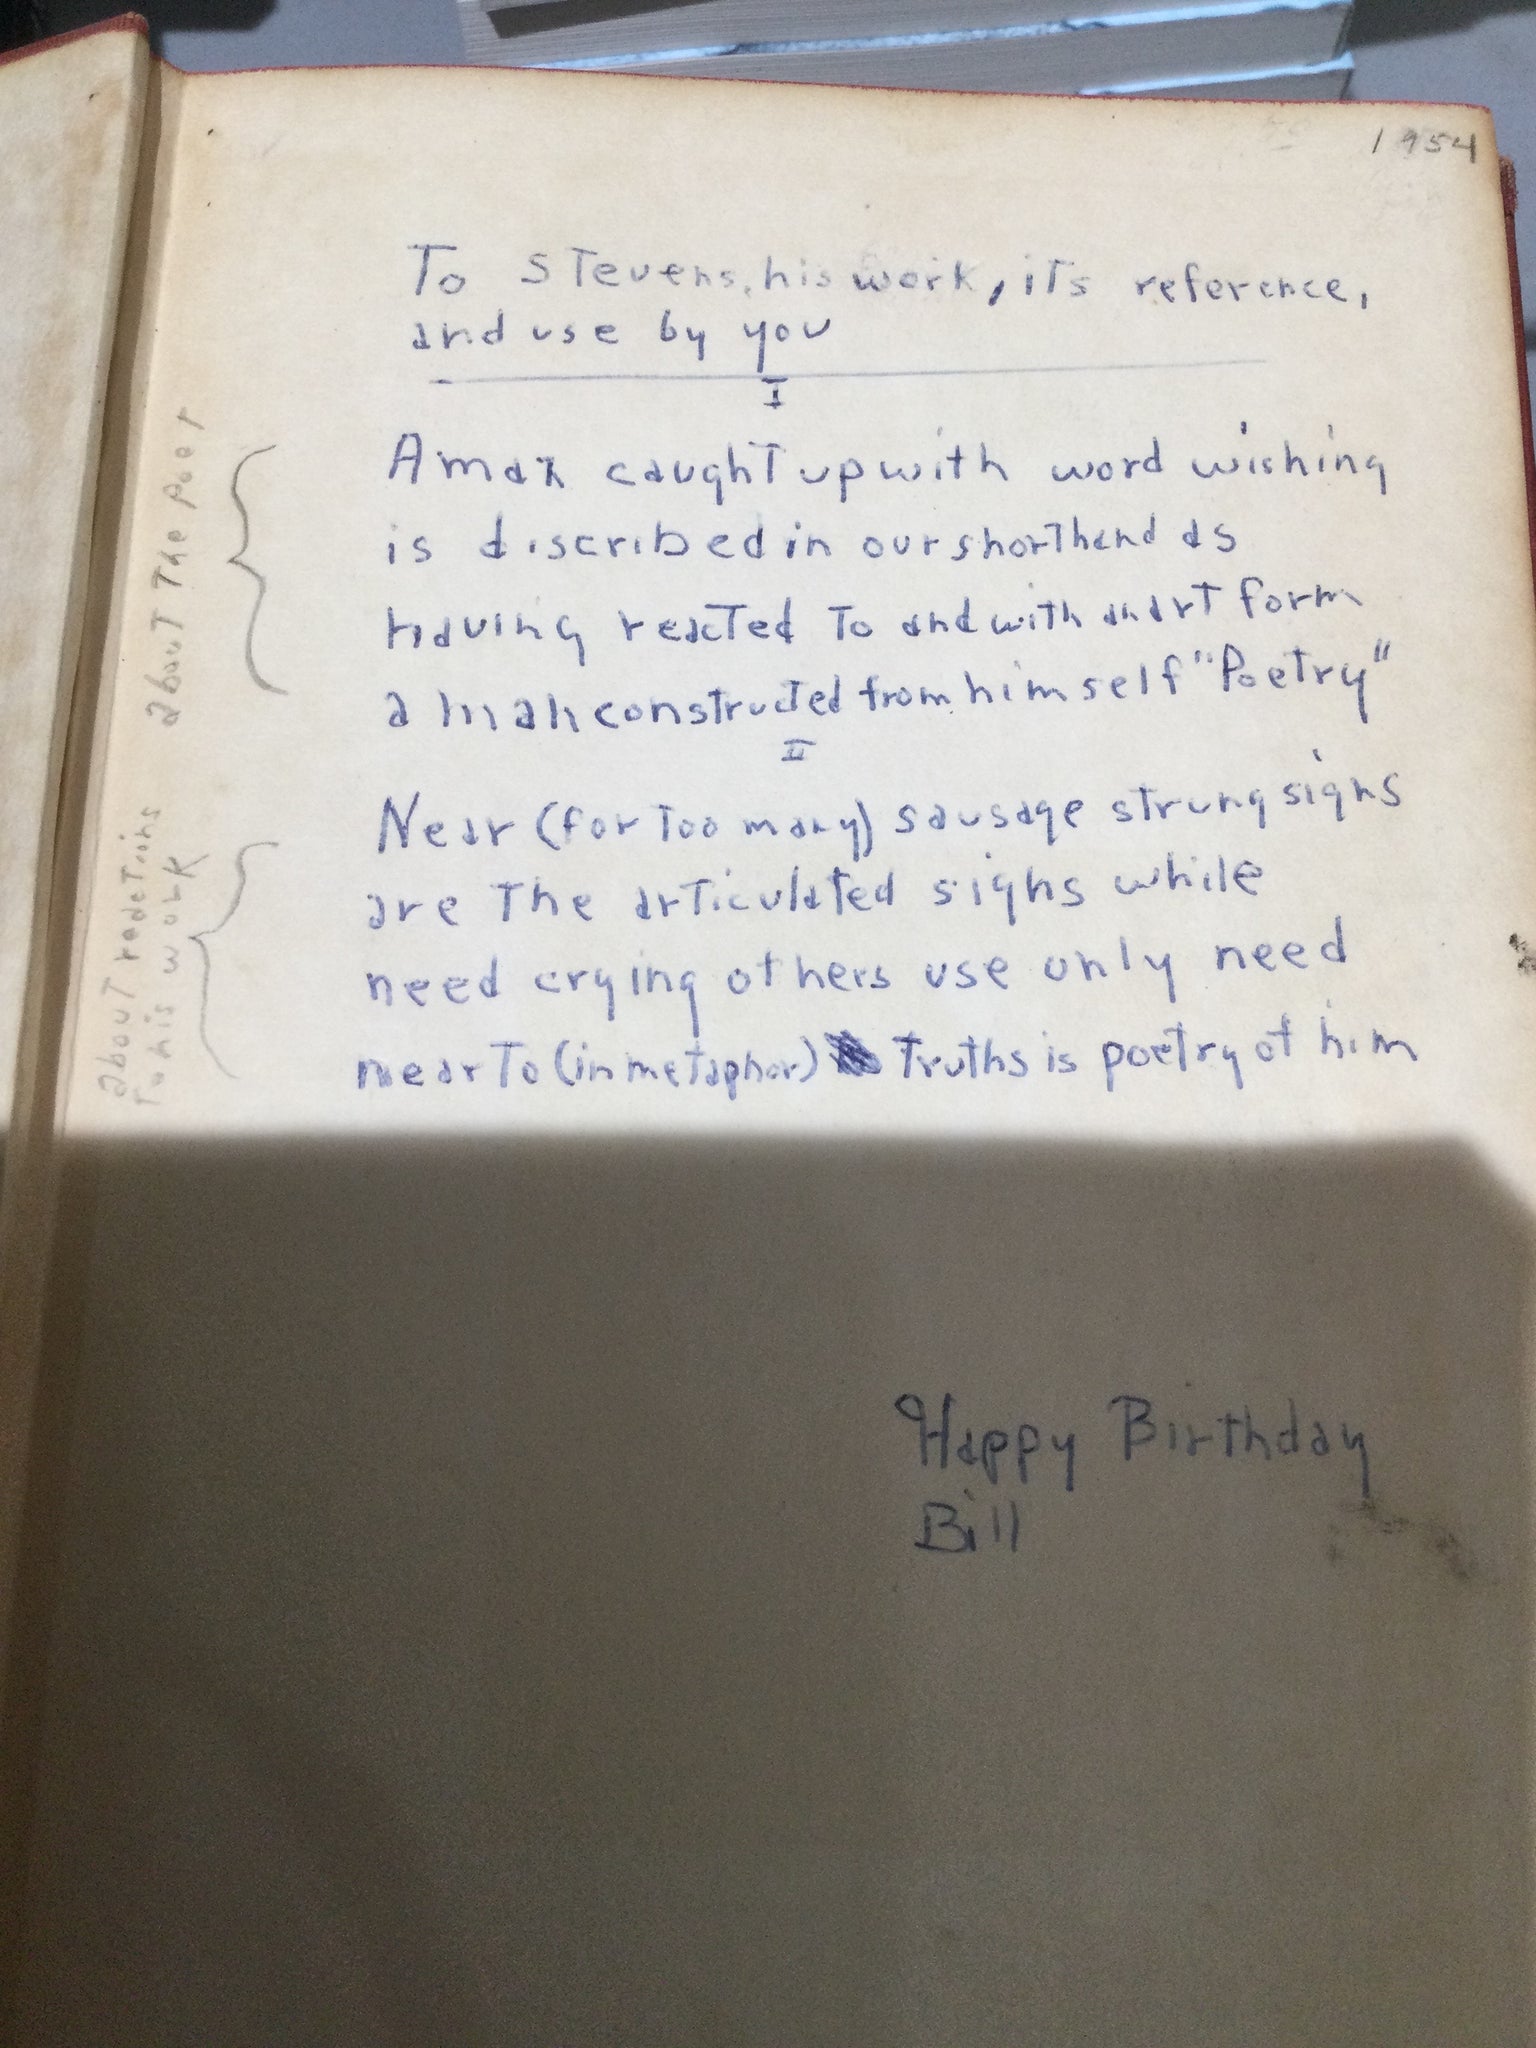 1954
To Stevens, his work, its reference,
and use by you
I
A man caught up with word wishing
is discribed in our shorthand as
having reacted To and with an art form
a man constructed from himself "Poetry"
II
Near (for Too many) sausage strung signs
are The articulated sighs while
need crying others use only need
near To (in metaphor) Truths is poetry of him
about The poet
about reactions
To his work
Happy Birthday
Bill